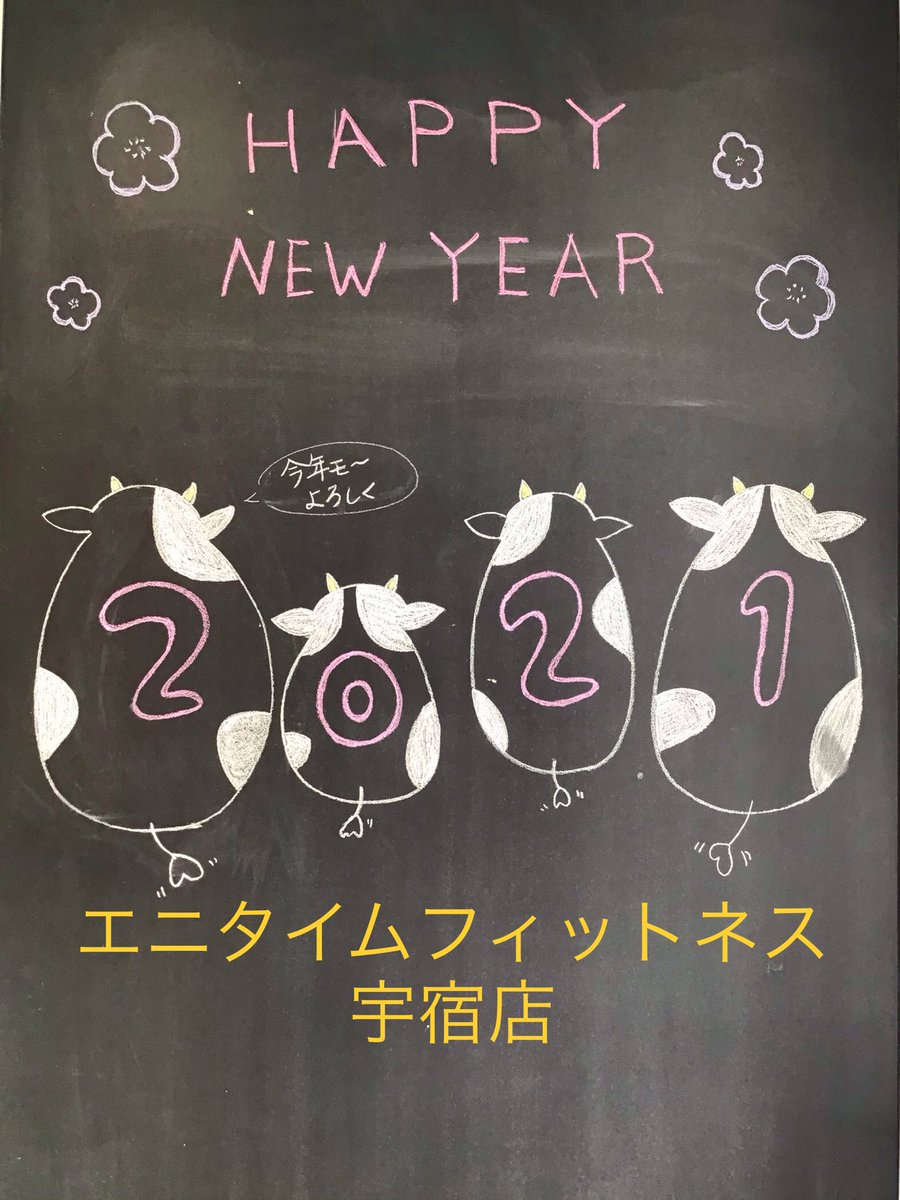 HAPPY
NEW YEAR
今年モ～
よろしく
2021
エニタイムフィットネス
宇宿店